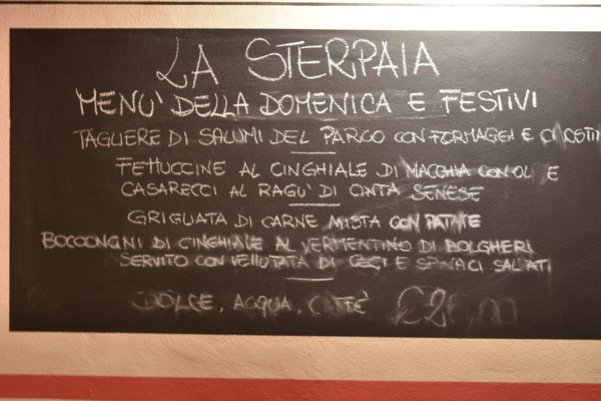 LA STERPAIA
MENU' DELLA DOMENICA E FESTIVI
TAGLIERE DI SALUMI DEL PARCO CON FORMAGGI E
FETTUCCINE AL CINGHIALE DI MACCHIA CON E
CASARECCI AL RAGU' DI CINTA SENESE
GRIGLIATA DI CARNE MISTA CON PATATE
BOCCONCINI DI CINGHIALE AL VERMENTINO DI BOLGHERI
SERVITO CON VELLUTATA DI CECI E SPINACI SALTATI
DOLCE, ACQUA, CAFFE'